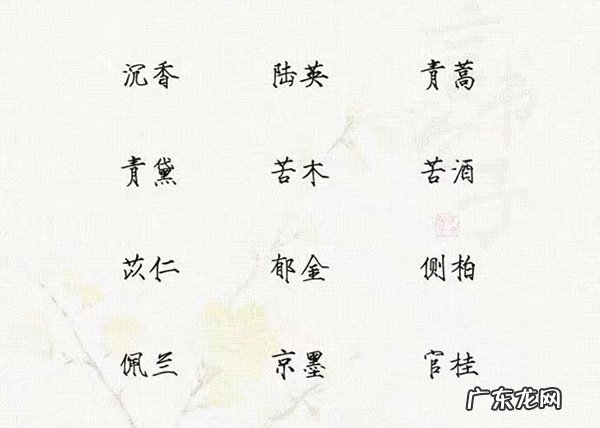 沉香 陆英 青蒿
青黛 苦木 苦酒
苡仁 郁金 侧柏
佩兰 京墨 官桂
广东龙网